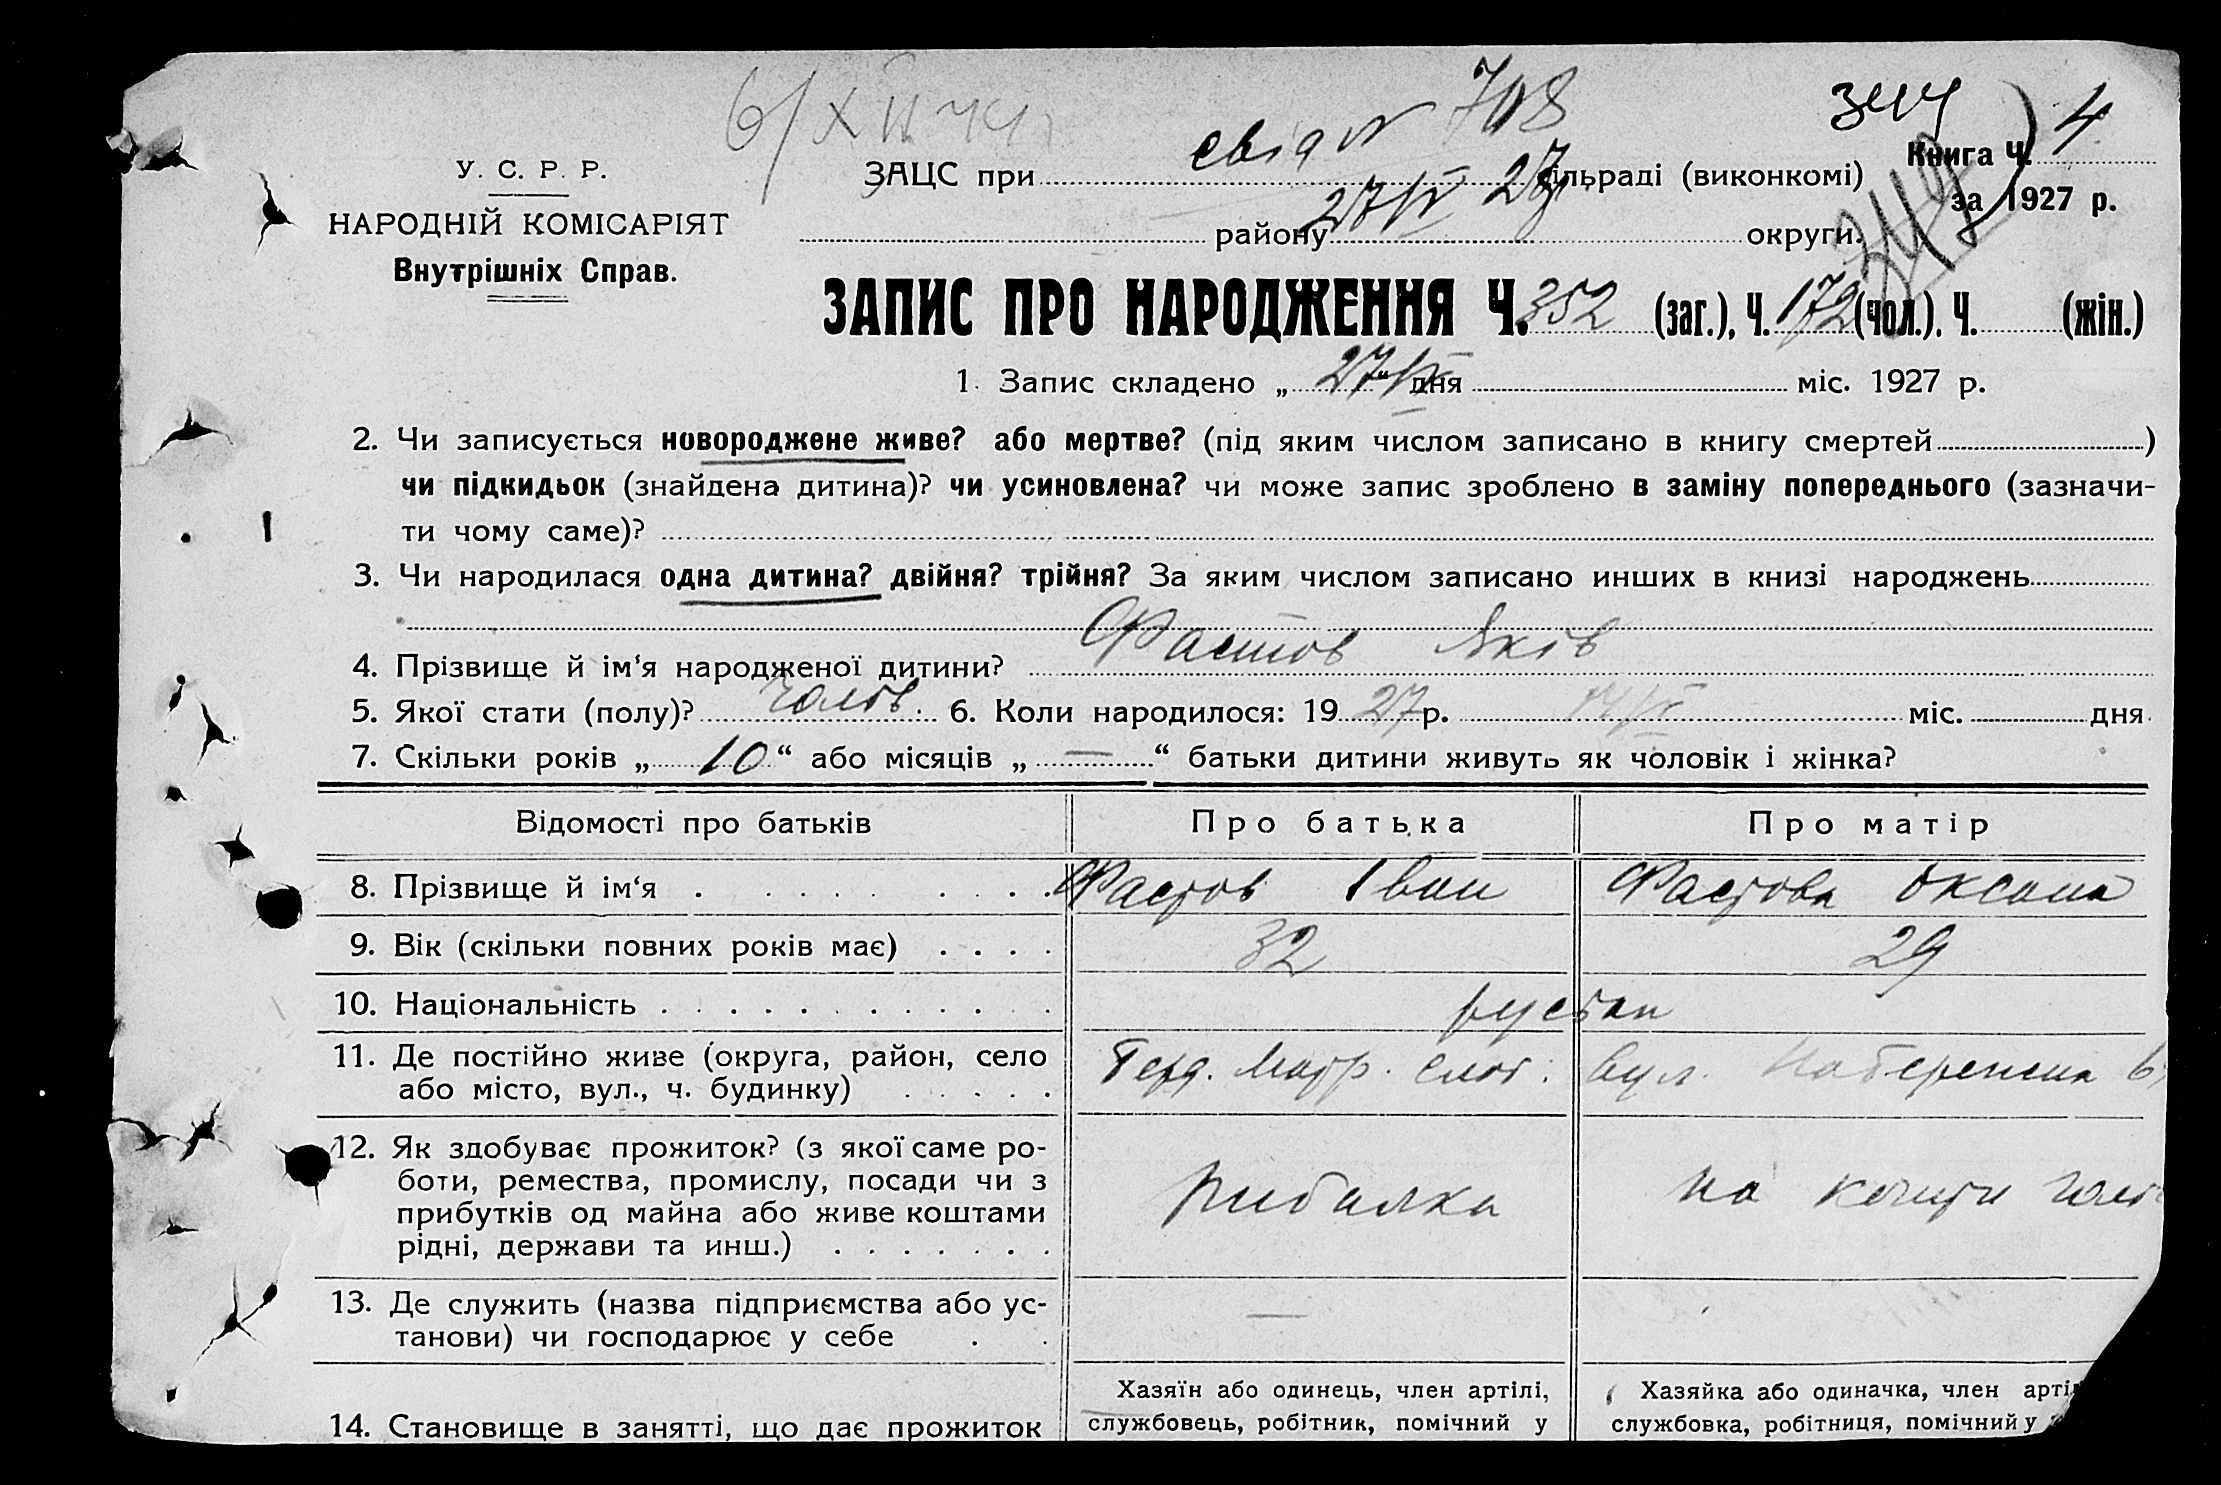 708
4
У. С. Р. Р.
ЗАЦС при сільраді (виконкомі)
Книга Ч.
за 1927 р.
НАРОДНІЙ КОМІСАРІЯТ
району округи.
Внутрішніх Справ.
ЗАПИС ПРО НАРОДЖЕННЯ Ч. 352 (заг.), Ч. 172 (чол.), Ч. (жін.)
1. Запис складено „ 27/IV “ дня міс. 1927 р.
2. Чи записується новороджене живе? або мертве? (під яким числом записано в книгу смертей )
чи підкидьок (знайдена дитина)? чи усиновлена? чи може запис зроблено в заміну попереднього (зазначи-
ти чому саме)?
3. Чи народилася одна дитина? двійня? трійня? За яким числом записано инших в книзі народжень
Фастов Яків
4. Прізвище й ім‘я народженої дитини?
5. Якої стати (полу)? чолов. 6. Коли народилося: 19 27 р. міс. дня
7. Скільки років „ 10 “ або місяців „ — “ батьки дитини живуть як чоловік і жінка?
Відомості про батьків Про батька Про матір
8. Прізвище й ім‘я Фастов Іван Фастова Оксана
9. Вік (скільки повних років має) 32 29
10. Національність
11. Де постійно живе (округа, район, село Берд. Матр. Слоб: вул. Набережна
або місто, вул., ч. будинку)
12. Як здобуває прожиток? (з якої саме ро-
боти, ремества, промислу, посади чи з рибалка на кошти чолов
прибутків од майна або живе коштами
рідні, держави та инш.)
13. Де служить (назва підприємства або ус- —
танови) чи господарює у себе
Хазяїн або одинець, член артілі, Хазяйка або одиначка, член арті
14. Становище в занятті, що дає прожиток службовець, робітник, помічний у службовка, робітниця, помічний у